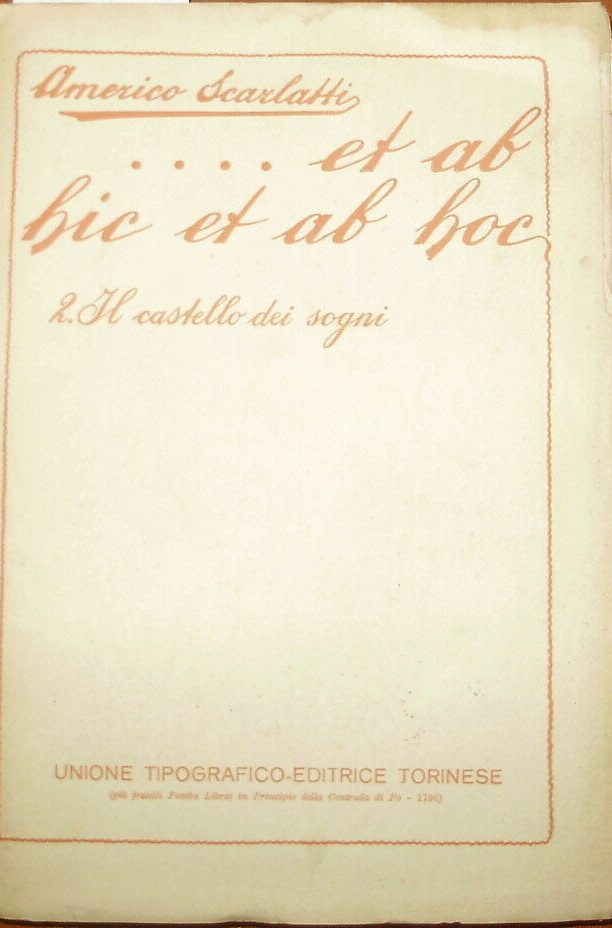 Americo Scarlatti
.... et ab
hic et ab hoc
2. Il castello dei sogni
UNIONE TIPOGRAFICO-EDITRICE TORINESE
(già fratelli Pomba Libraj in Principio della Contrada di Po - 1796)